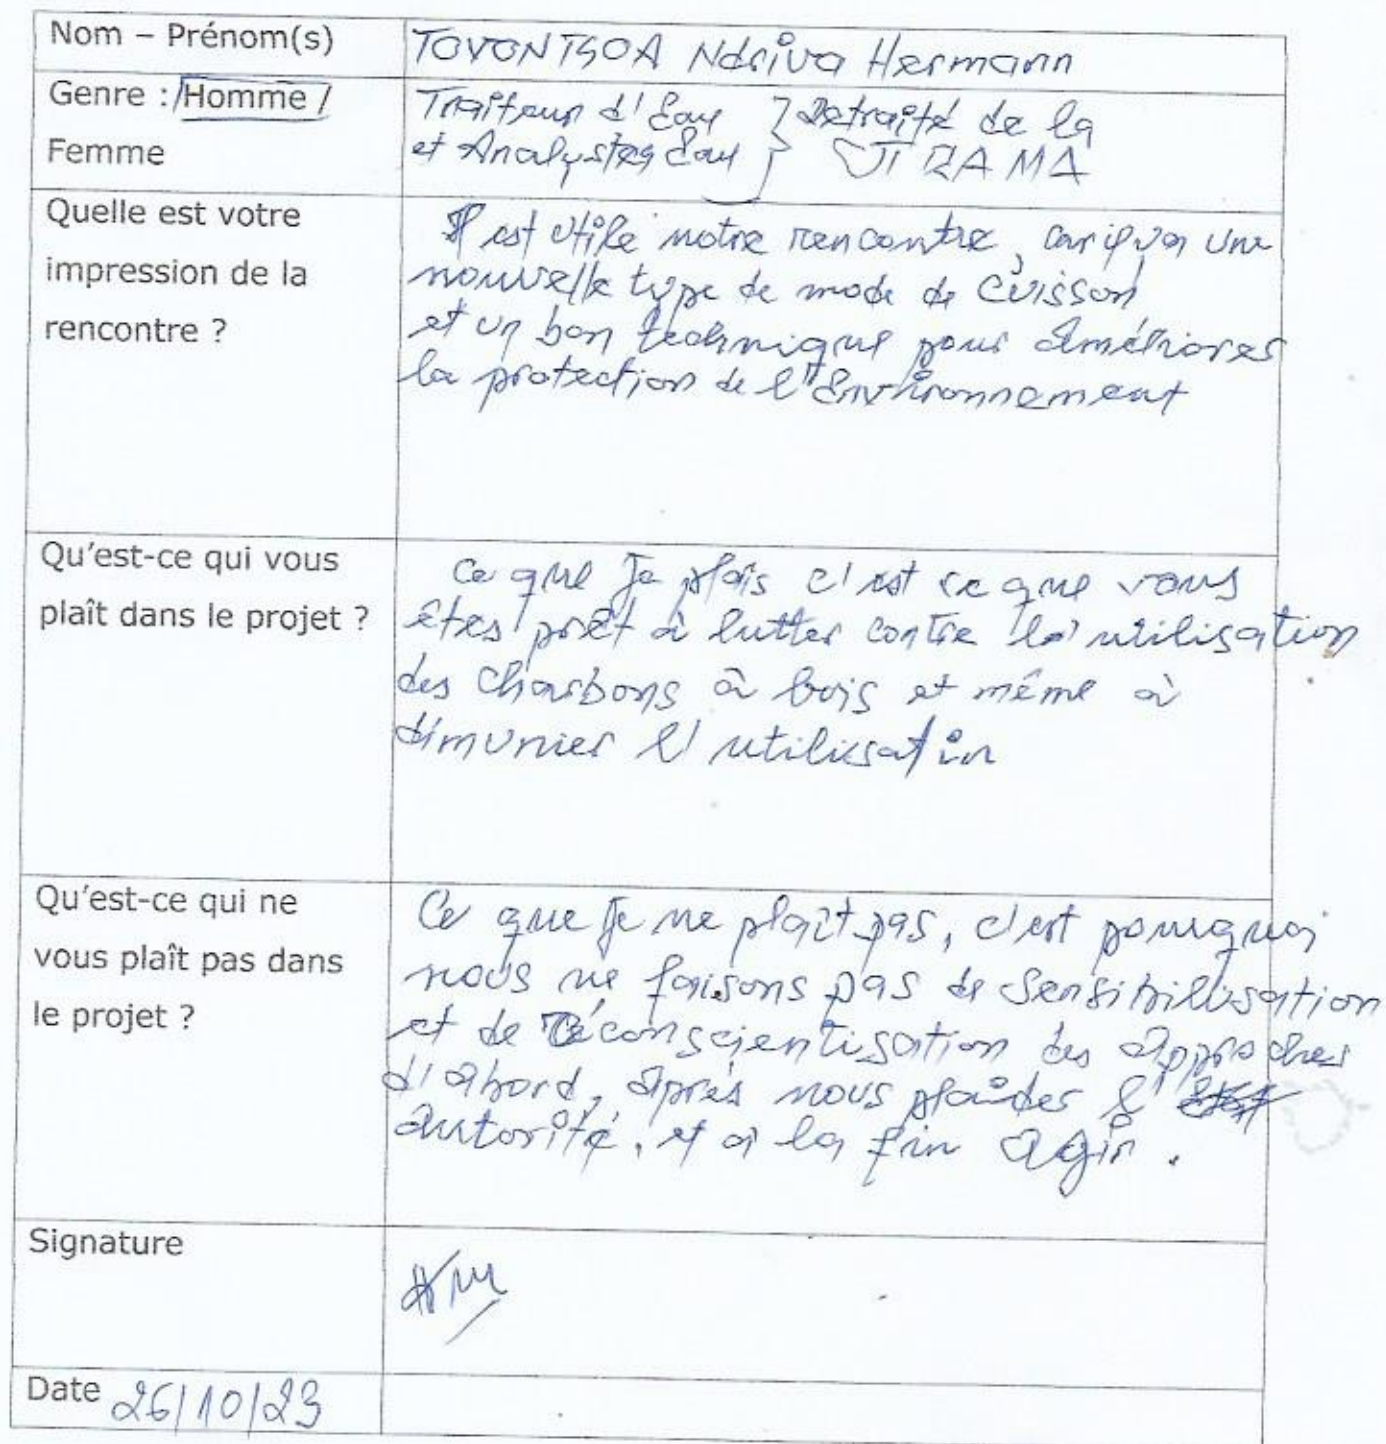 Nom – Prénom(s)
TOVONTSOA Ndriva Hermann
Genre : /Homme /
Femme
Traiteur d'Eau
et Analystes Eau
} Retraité de la
JIRAMA
Quelle est votre
impression de la
rencontre ?
Il est utile notre rencontre, car il y a une
nouvelle type de mode de cuisson
et un bon technique pour améliorer
la protection de l'Environnement
Qu'est-ce qui vous
plaît dans le projet ?
Ce que je plais c'est ce que vous
êtes prêt à lutter contre la utilisation
des charbons à bois et même à
dimunier l'utilisation
Qu'est-ce qui ne
vous plaît pas dans
le projet ?
Ce que je ne plaît pas, c'est pourquoi
nous ne faisons pas de sensibilisation
et de conscientisation des approches
d'abord, après nous plaider l'
autorité, et à la fin agir.
Signature
Date 26/10/23